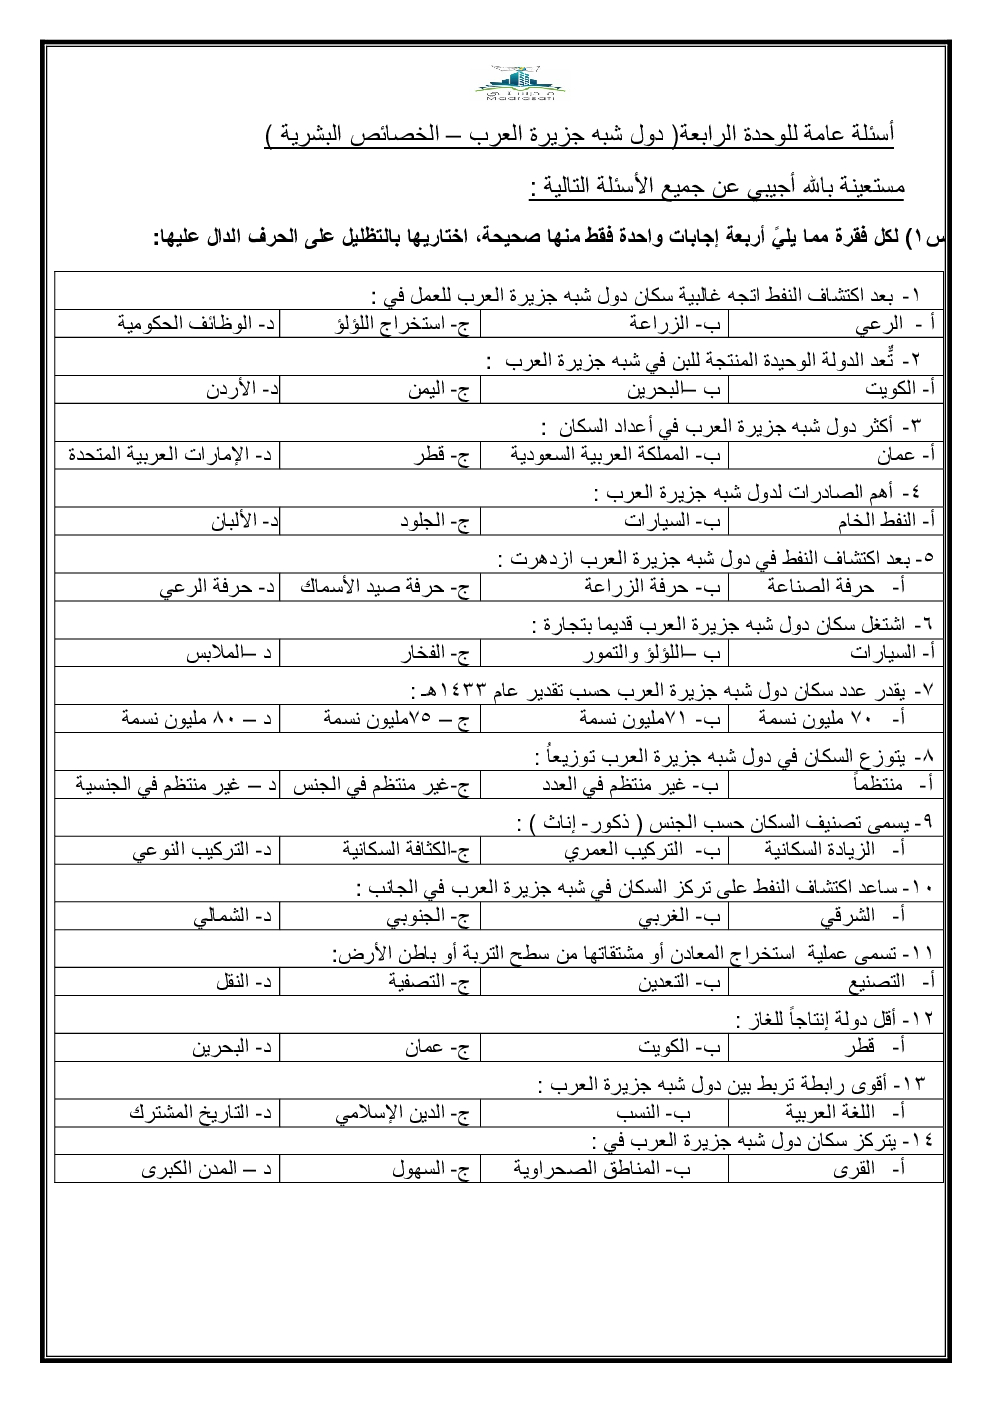 Madrasati
أسئلة عامة للوحدة الرابعة( دول شبه جزيرة العرب – الخصائص البشرية )
مستعينة بالله أجيبي عن جميع الأسئلة التالية :
س١) لكل فقرة مما يليً أربعة إجابات واحدة فقط منها صحيحة، اختاريها بالتظليل على الحرف الدال عليها:
١- بعد اكتشاف النفط اتجه غالبية سكان دول شبه جزيرة العرب للعمل في :
أ - الرعي ب- الزراعة ج- استخراج اللؤلؤ د- الوظائف الحكومية
٢- تٌّعد الدولة الوحيدة المنتجة للبن في شبه جزيرة العرب :
أ- الكويت ب –البحرين ج- اليمن د- الأردن
٣- أكثر دول شبه جزيرة العرب في أعداد السكان :
أ- عمان ب- المملكة العربية السعودية ج- قطر د- الإمارات العربية المتحدة
٤- أهم الصادرات لدول شبه جزيرة العرب :
أ- النفط الخام ب- السيارات ج- الجلود د- الألبان
٥- بعد اكتشاف النفط في دول شبه جزيرة العرب ازدهرت :
أ- حرفة الصناعة ب- حرفة الزراعة ج- حرفة صيد الأسماك د- حرفة الرعي
٦- اشتغل سكان دول شبه جزيرة العرب قديما بتجارة :
أ- السيارات ب –اللؤلؤ والتمور ج- الفخار د –الملابس
٧- يقدر عدد سكان دول شبه جزيرة العرب حسب تقدير عام ١٤٣٣هـ :
أ- ٧٠ مليون نسمة ب- ٧١مليون نسمة ج – ٧٥مليون نسمة د – ٨٠ مليون نسمة
٨- يتوزع السكان في دول شبه جزيرة العرب توزيعاُ :
أ- منتظماً ب- غير منتظم في العدد ج-غير منتظم في الجنس د – غير منتظم في الجنسية
٩- يسمى تصنيف السكان حسب الجنس ( ذكور- إناث ) :
أ- الزيادة السكانية ب- التركيب العمري ج-الكثافة السكانية د- التركيب النوعي
١٠- ساعد اكتشاف النفط على تركز السكان في شبه جزيرة العرب في الجانب :
أ- الشرقي ب- الغربي ج- الجنوبي د- الشمالي
١١- تسمى عملية استخراج المعادن أو مشتقاتها من سطح التربة أو باطن الأرض:
أ- التصنيع ب- التعدين ج- التصفية د- النقل
١٢- أقل دولة إنتاجاً للغاز :
أ- قطر ب- الكويت ج- عمان د- البحرين
١٣- أقوى رابطة تربط بين دول شبه جزيرة العرب :
أ- اللغة العربية ب- النسب ج- الدين الإسلامي د- التاريخ المشترك
١٤- يتركز سكان دول شبه جزيرة العرب في :
أ- القرى ب- المناطق الصحراوية ج- السهول د – المدن الكبرى